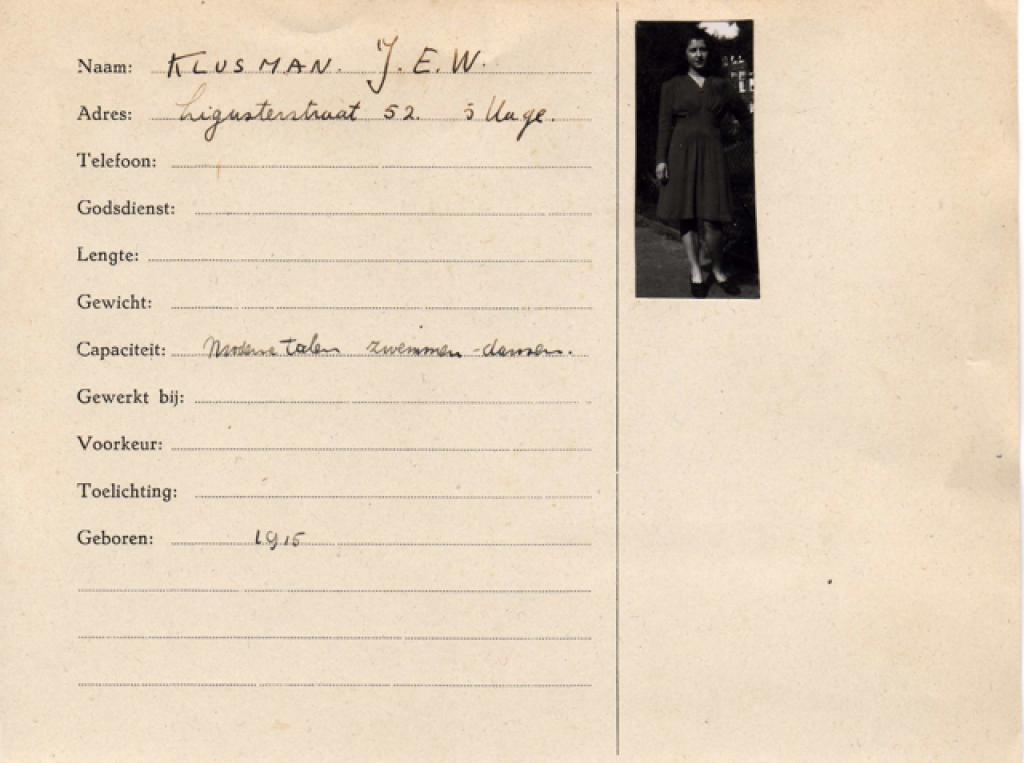 Naam: KLUSMAN. J. E. W.
Adres: Ligusterstraat 52. 's Hage.
Telefoon:
Godsdienst:
Lengte:
Gewicht:
Capaciteit: Moderne talen zwemmen - dansen.
Gewerkt bij:
Voorkeur:
Toelichting:
Geboren: 1915